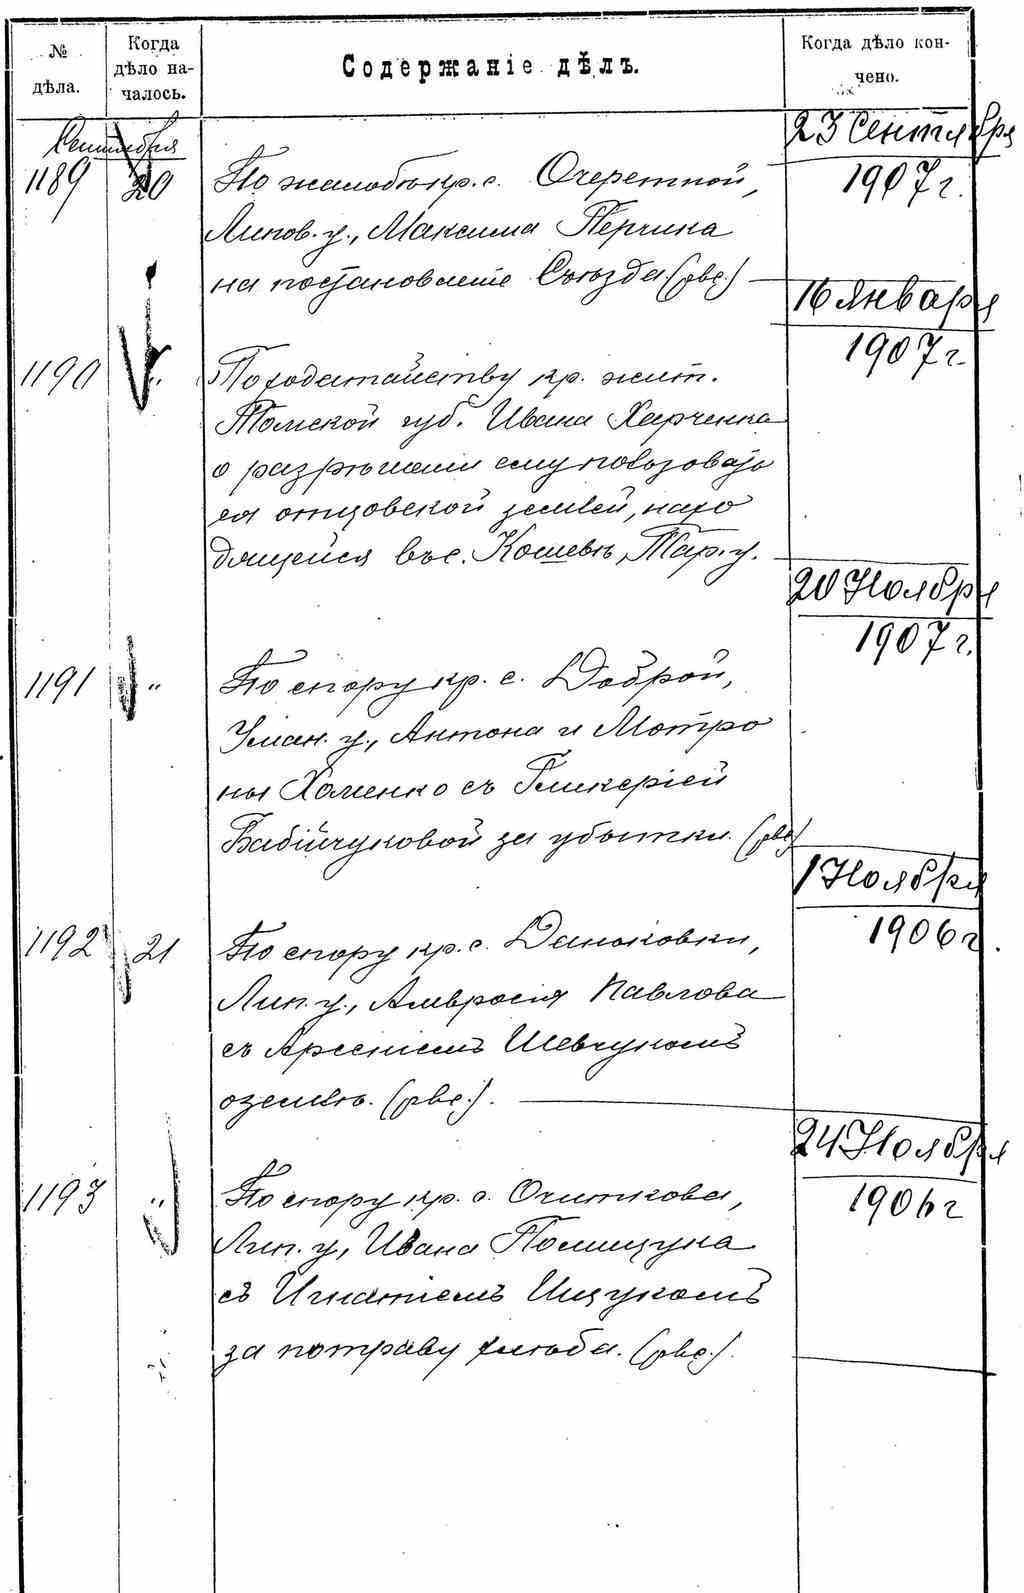 № дѣла.
Когда дѣло на-
чалось.
Содержаніе дѣлъ.
Когда дѣло кон-
чено.
Сентября
1189 20 По жалобѣ кр. с. Очеретной,
Липов. у., Максима Перчика
на постановленіе Съѣзда (рвс.)
23 Сентября
1907 г.
1190 " По ходатайству кр. жит.
Томской губ. Ивана Харченка
о разрѣшеніи ему пользовать
ся отцовской землей, нахо
дящейся въ с. Кошевѣ, Тар. у.
16 Января
1907 г.
1191 " По спору кр. с. Доброй,
Уман. у., Антона и Мотро
ны Хоменко съ Гликеріей
Бабійчуковой за убытки. (рвс)
20 Ноября
1907 г.
1192 21 По спору кр. с. Даньковки,
Лип. у., Амвросія Павлова
съ Арсеніемъ Шевчукомъ
о землѣ. (рвс.).
1 Ноября
1906 г.
1193 " По спору кр. с. Очиткова,
Лип. у., Ивана Полищука
съ Игнатіемъ Ищукомъ
за потраву хлѣба. (рвс.).
24 Ноября
1906 г